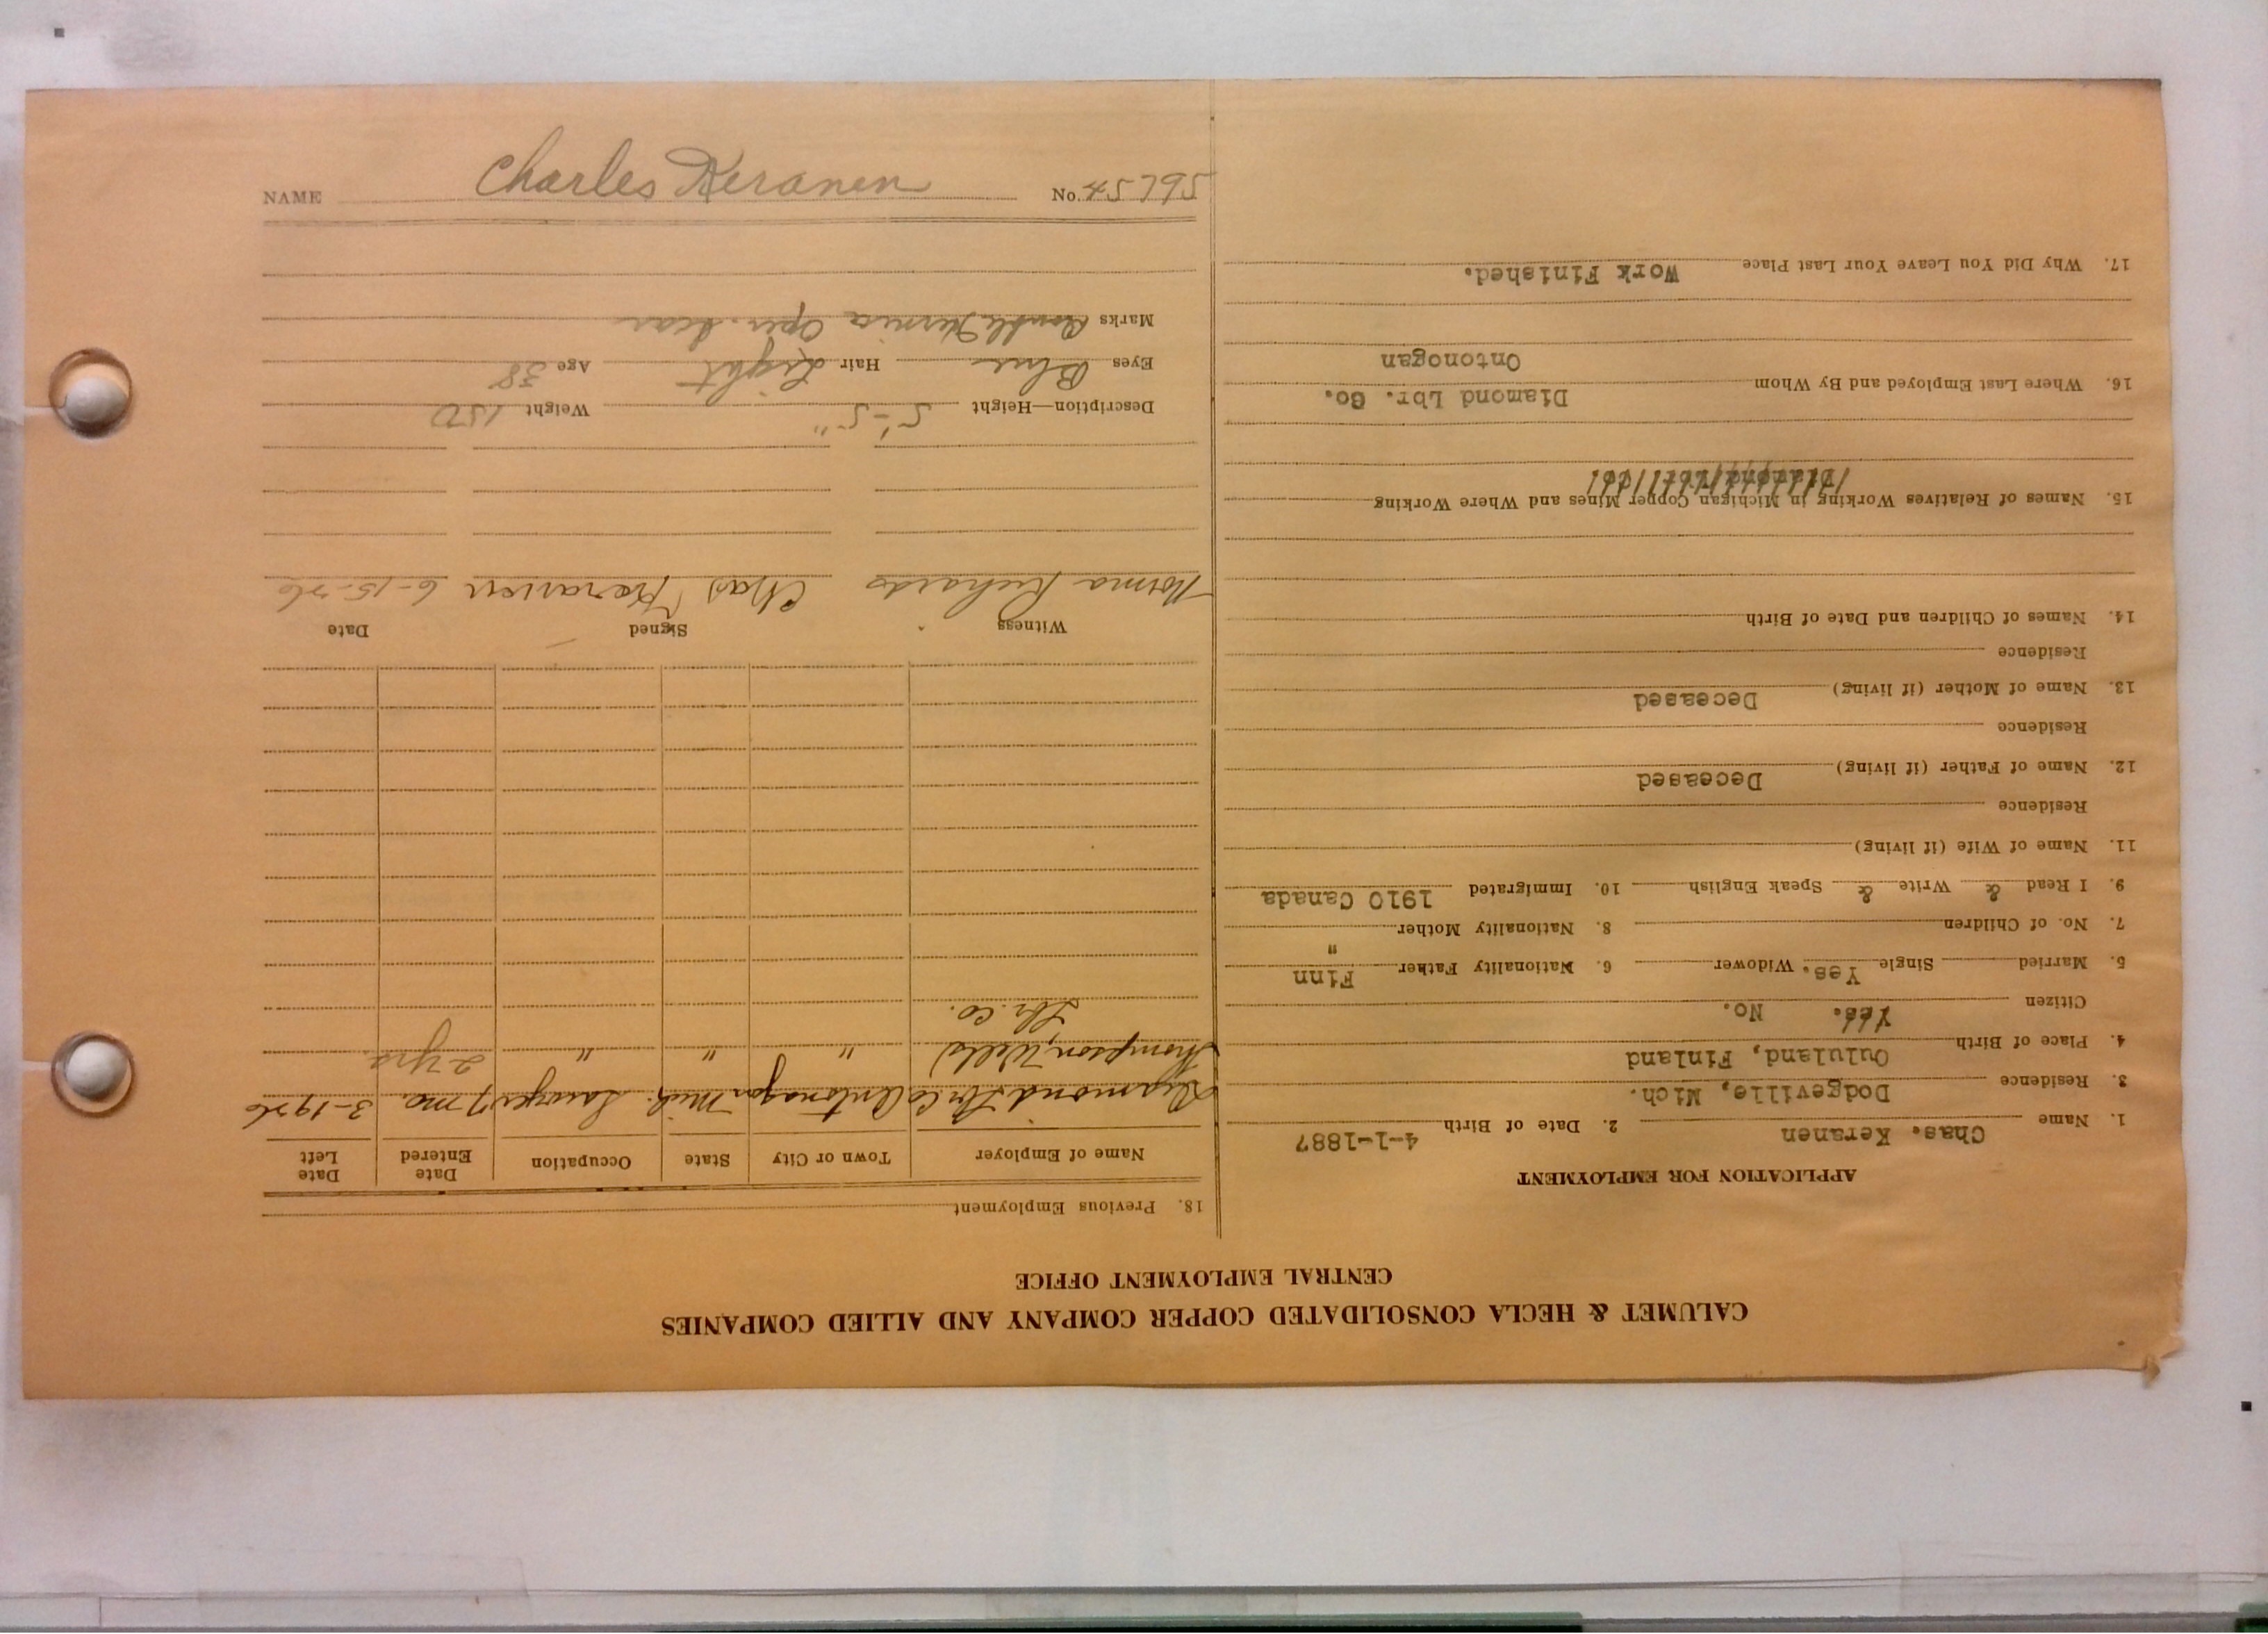 NAME Charles Keranen No. 45795
CALUMET & HECLA CONSOLIDATED COPPER COMPANY AND ALLIED COMPANIES
CENTRAL EMPLOYMENT OFFICE
APPLICATION FOR EMPLOYMENT
1. Name Chas. Keranen 2. Date of Birth 4-1-1887
3. Residence Dodgeville, Mich.
4. Place of Birth Oululand, Finland
Citizen Yes. No.
5. Married Single Yes. Widower 6. Nationality Father Finn
7. No. of Children 8. Nationality Mother "
9. I Read & Write & Speak English 10. Immigrated 1910 Canada
11. Name of Wife (if living)
Residence
12. Name of Father (if living) Deceased
Residence
13. Name of Mother (if living) Deceased
Residence
14. Names of Children and Date of Birth
15. Names of Relatives Working in Michigan Copper Mines and Where Working
Diamond Lbr. Co.
16. Where Last Employed and By Whom Diamond Lbr. Co.
Ontonogan
17. Why Did You Leave Your Last Place Work Finished.
18. Previous Employment
Name of Employer Town or City State Occupation Date Entered Date Left
Diamond Lbr Co Ontonogan Mich. 7 mo. 3-1926
Thompson, Wells " " " 2 yrs
Lbr. Co.
Witness Signed Date
Norma Richards Chas Keranen 6-15-26
Description—Height 5'-5" Weight 150
Eyes Blue Hair Light Age 38
Marks Double Hernia Oper. Scar